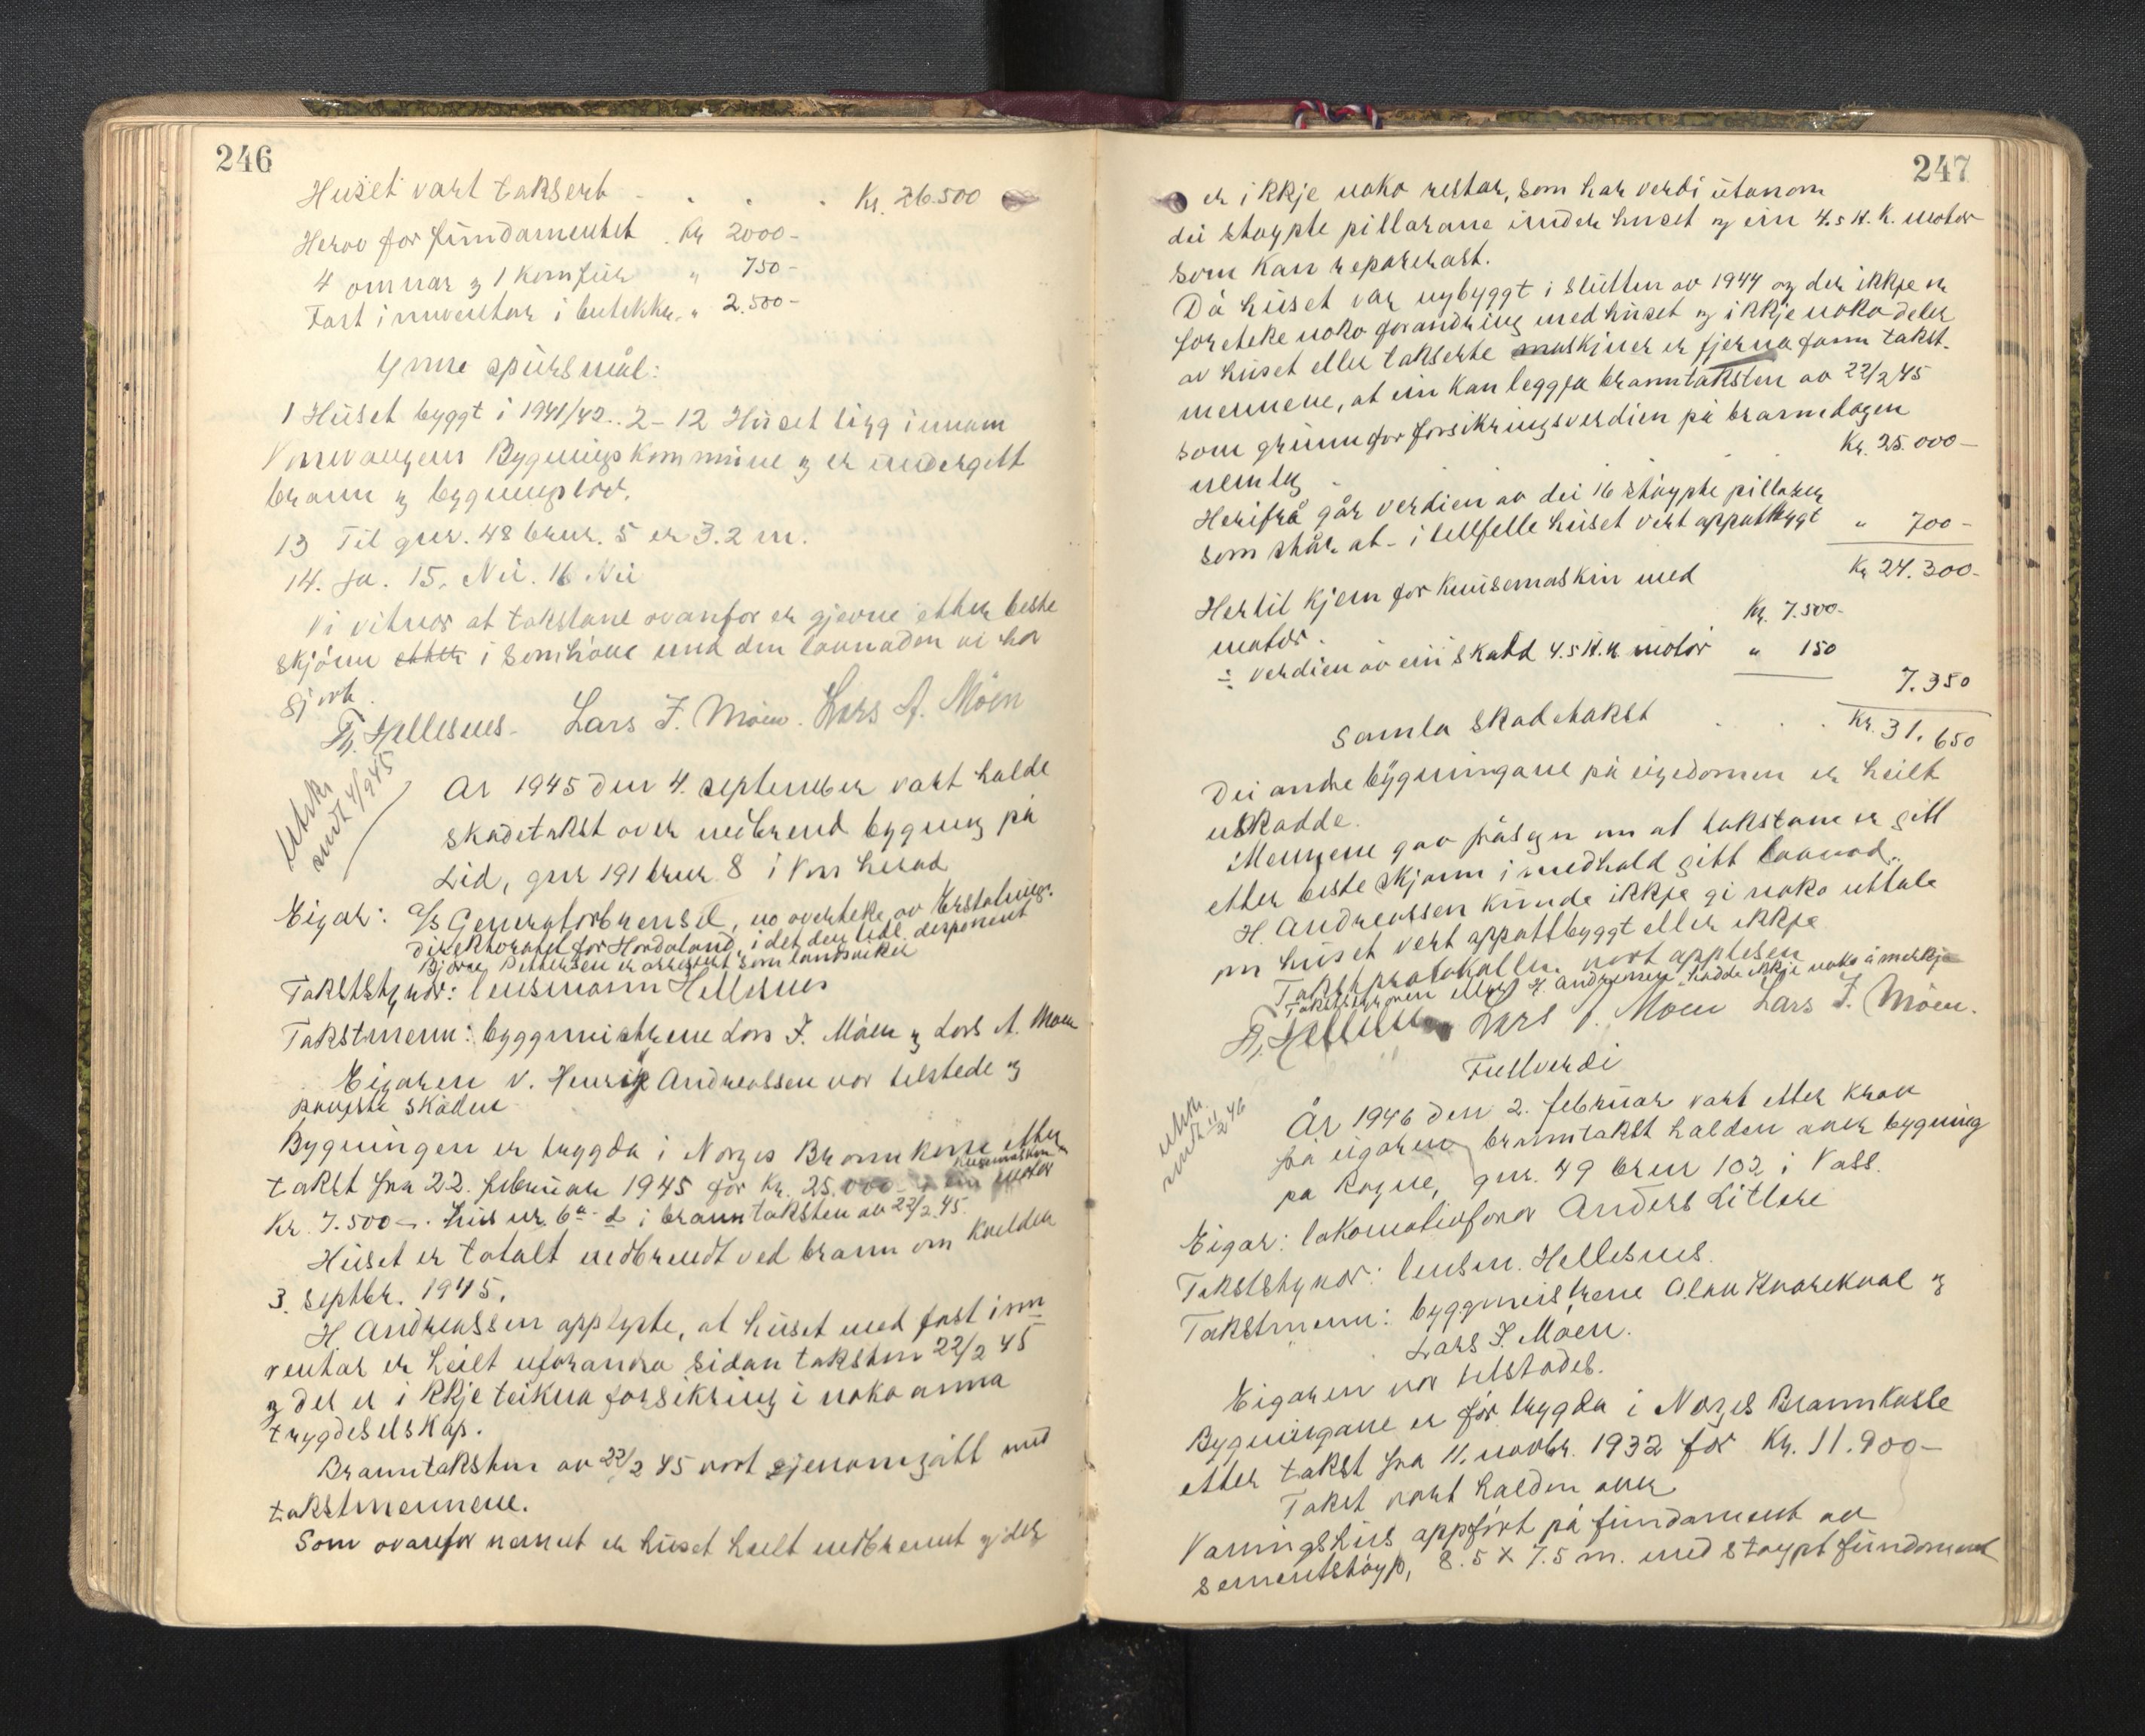 246
Huset vart taksert . . . Kr. 26.500
Herav for fundamentet . kr 2000-
4 omnar og 1 komfur " 750-
Fast inventar i butikken " 2.500-
Ymse spursmål:
1 Huset byggt i 1941/42.. 2-12 Huset ligg innum
Vossevangens Bygningskommune og er undergitt
brann og bygningslov.
13 Til gnr. 48 brnr. 5 er 3.2 m.
14. Ja. 15. Nei. 16 Nei
Vi vitnar at takstane ovanfor er gjevne etter beste
skjønn etter i samhøve med den lovnaden vi har
gjort.
Hellesnes. Lars J. Møen. Lars A. Möen
Utskr.
sendt 4/9 45
År 1945 den 4. september vart halde
skadetakst over nedbrend bygning på
Lid, gnr 191 brnr. 8 i Voss herad
Eigar: A/S Generatorbrensel, no overteke av Erstatnings-
direktoratet for Hordaland, i det den tidl. disponent
Bjarne Pettersen er arrestert som landsviker
Takststyrar: lensmann Hellesnes
Takstmenn: byggmeistrene Lars J. Møen og Lars A. Moen
Eigaren v. Henrik Andreassen var tilstede og
påviste skaden
Bygningen er trygda i Norges Brannkasse etter
takst fra 22. februar 1945 for Kr. 25.000 -
knusemaskin
motor
Kr. 7.500-. hus nr. 6 a-d i branntaksten av 22/2 45.
Huset er totalt nedbrendt ved brann om kvelden
3. septbr. 1945.
H Andreassen opplyste, at huset med fast inn
ventar er heilt uforandra sidan taksten 22/2 45
og det er ikkje teikna forsikring i noko anna
trygdeselskap.
Branntaksten av 22/2 45 vart gjenomgått med
takstmennene.
Som ovanfor nemnt er huset heilt nedbrent og det
247
er ikkje noko restar, som har verdi utanom
dei støypte pillarane under huset og ein 4.5 H.K. motor
som kan reparerast.
Då huset var nybyggt i slutten av 1944 og der ikkje er
foreteke noko forandring med huset og ikkje noko deler
av huset eller takserte maskiner er fjerna fann takst-
mennene, at ein kan leggja branntaksten av 22/2 45
som grunn for forsikringsverdien på branndagen
nemleg . Kr. 25.000-
Herifrå går verdien av dei 16 støypte pillarer
som står att - i tillfelle huset vert oppattbygt " 700-
Kr 24.300-
Hertil kjem for knusemaskin med
motor . Kr. 7.500-
÷ verdien av ein skadd 4.5 H.K. motor " 150
7.350
Samla skadetakst . . . Kr. 31.650
Dei andre bygningane på eigedomen er heilt
uskadde.
Mennene gav påsegn um at takstane er gitt
etter beste skjønn i medhald gitt lovnad.
H. Andreassen kunde ikkje gi noko uttale
om huset vert oppattbyggt eller ikkje
Takstprotokollen vart opplesen
Takststyraren eller H. Andreassen hadde ikkje noko å merkja
Hellesnes Lars A. Moen Lars J. Möen.
Fullverdi
utskr.
sendt 11/2 46
År 1946 den 2. februar vart etter krav
frå eigaren branntakst halden over bygning
på Rogne, gnr. 49 brnr 102 i Voss.
Eigar: lokomotivførar Anders Litlere
Takststyrar: lensm. Hellesnes.
Takstmenn: byggmeistrene Olav Kvarekval og
Lars J. Moen.
Eigaren var tilstades.
Bygningane er før trygda i Norges Brannkasse
etter takst frå 11. novbr. 1932 for Kr. 11.900-
Takst vart halden over
Våningshus oppført på fundament av
sementstøyp, 8.5 x 7.5 m. med støypt fundament